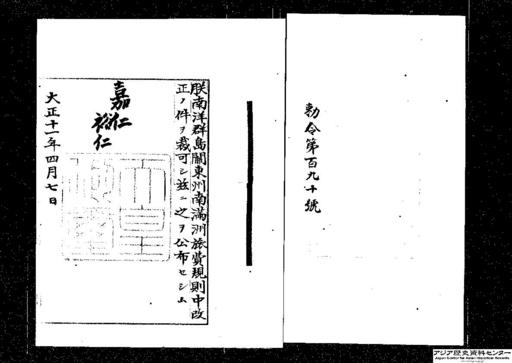 勅令第百九十號
朕南洋群島關東州南滿洲旅費規則中改
正ノ件ヲ裁可シ茲ニ之ヲ公布セシム
嘉仁
裕仁
大正十一年四月七日
アジア歴史資料センター
Japan Center for Asian Historical Records